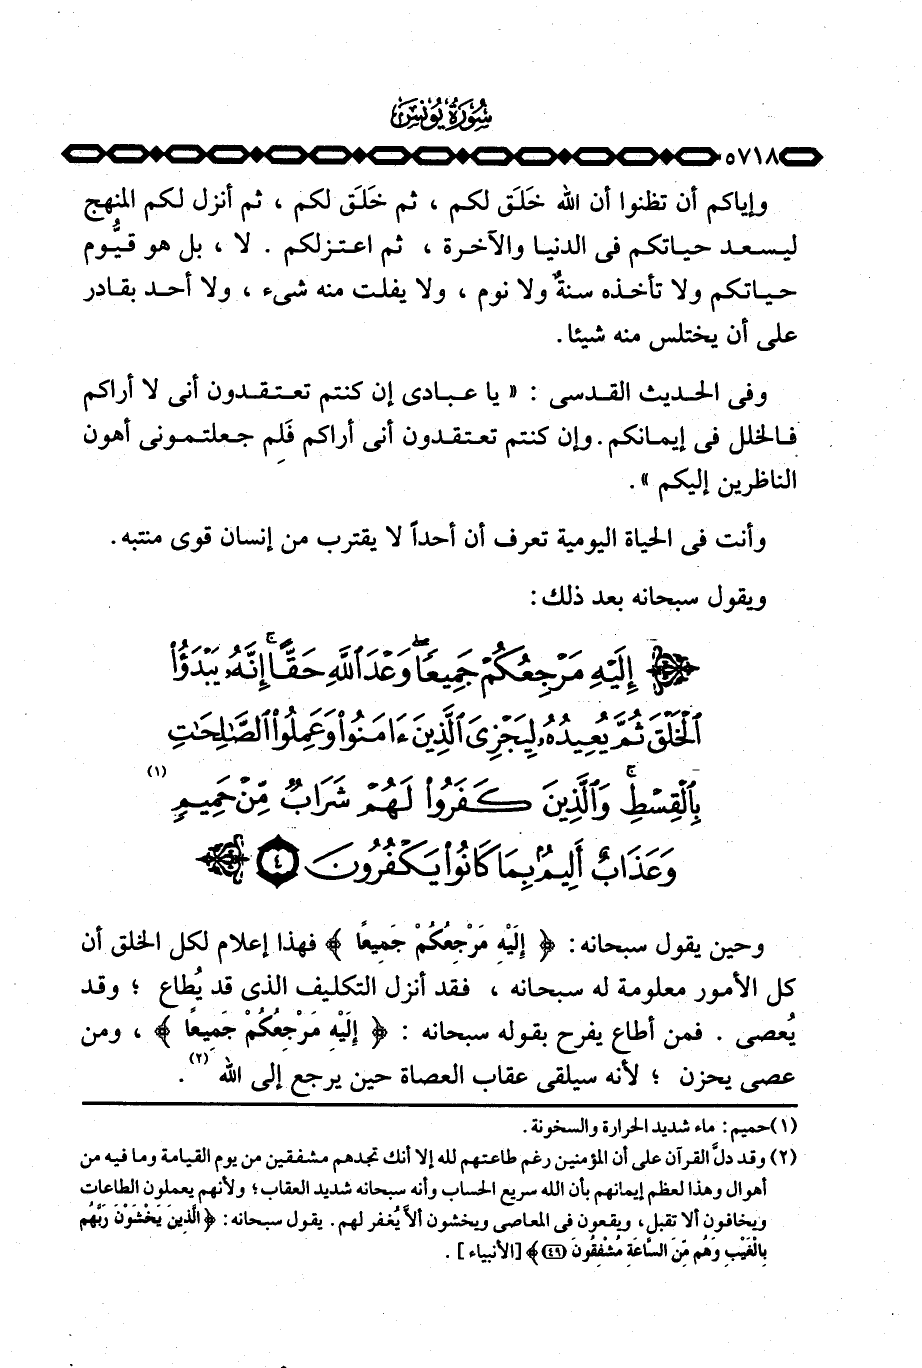 سُورَةُ يُونُسَ
٥٧١٨
وإياكم أن تظنوا أن الله خَلَق لكم ، ثم خَلَق لكم ، ثم أنزل لكم المنهج
ليسعد حياتكم فى الدنيا والآخرة ، ثم اعتزلكم . لا ، بل هو قيُّوم
حياتكم ولا تأخذه سنةٌ ولا نوم ، ولا يفلت منه شىء ، ولا أحد بقادر
على أن يختلس منه شيئا.
وفى الحديث القدسى : « يا عبادى إن كنتم تعتقدون أنى لا أراكم
فالخلل فى إيمانكم . وإن كنتم تعتقدون أنى أراكم فَلِم جعلتمونى أهون
الناظرين إليكم ».
وأنت فى الحياة اليومية تعرف أن أحداً لا يقترب من إنسان قوى منتبه.
ويقول سبحانه بعد ذلك:
إِلَيْهِ مَرْجِعُكُمْ جَمِيعًاۖ وَعْدَ ٱللَّهِ حَقًّاۚ إِنَّهُۥ يَبْدَؤُاْ
ٱلْخَلْقَ ثُمَّ يُعِيدُهُۥ لِيَجْزِىَ ٱلَّذِينَ ءَامَنُواْ وَعَمِلُواْ ٱلصَّٰلِحَٰتِ
بِٱلْقِسْطِۚ وَٱلَّذِينَ كَفَرُواْ لَهُمْ شَرَابٌ مِّنْ حَمِيمٍ (١)
وَعَذَابٌ أَلِيمٌۢ بِمَا كَانُواْ يَكْفُرُونَ ٤
وحين يقول سبحانه: ﴿ إِلَيْهِ مَرْجِعُكُمْ جَمِيعًا ﴾ فهذا إعلام لكل الخلق أن
كل الأمور معلومة له سبحانه ، فقد أنزل التكليف الذى قد يُطاع ؛ وقد
يُعصى . فمن أطاع يفرح بقوله سبحانه : ﴿ إِلَيْهِ مَرْجِعُكُمْ جَمِيعًا ﴾ ، ومن
عصى يحزن ؛ لأنه سيلقى عقاب العصاة حين يرجع إلى الله (٢) .
(١) حميم: ماء شديد الحرارة والسخونة.
(٢) وقد دلَّ القرآن على أن المؤمنين رغم طاعتهم لله إلا أنك تجدهم مشفقين من يوم القيامة وما فيه من
أهوال وهذا لعظم إيمانهم بأن الله سريع الحساب وأنه سبحانه شديد العقاب؛ ولأنهم يعملون الطاعات
ويخافون ألا تقبل، ويقعون فى المعاصى ويخشون ألاَّ يُغفر لهم. يقول سبحانه: ﴿ الَّذِينَ يَخْشَوْنَ رَبَّهُم
بِالْغَيْبِ وَهُم مِّنَ السَّاعَةِ مُشْفِقُونَ (٤٩) ﴾ [الأنبياء] .